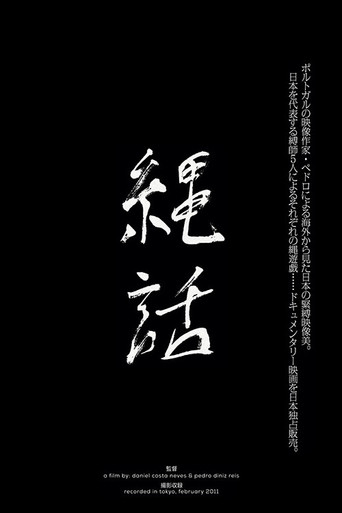 ポルトガルの映像作家・ペドロによる海外から見た日本の緊縛映像美。
日本を代表する縛師5人によるそれぞれの縄遊戯……ドキュメンタリー映画を日本独占販売。
縄
話
監督
a film by: daniel costa neves & pedro diniz reis
撮影収録
recorded in tokyo, february 2011